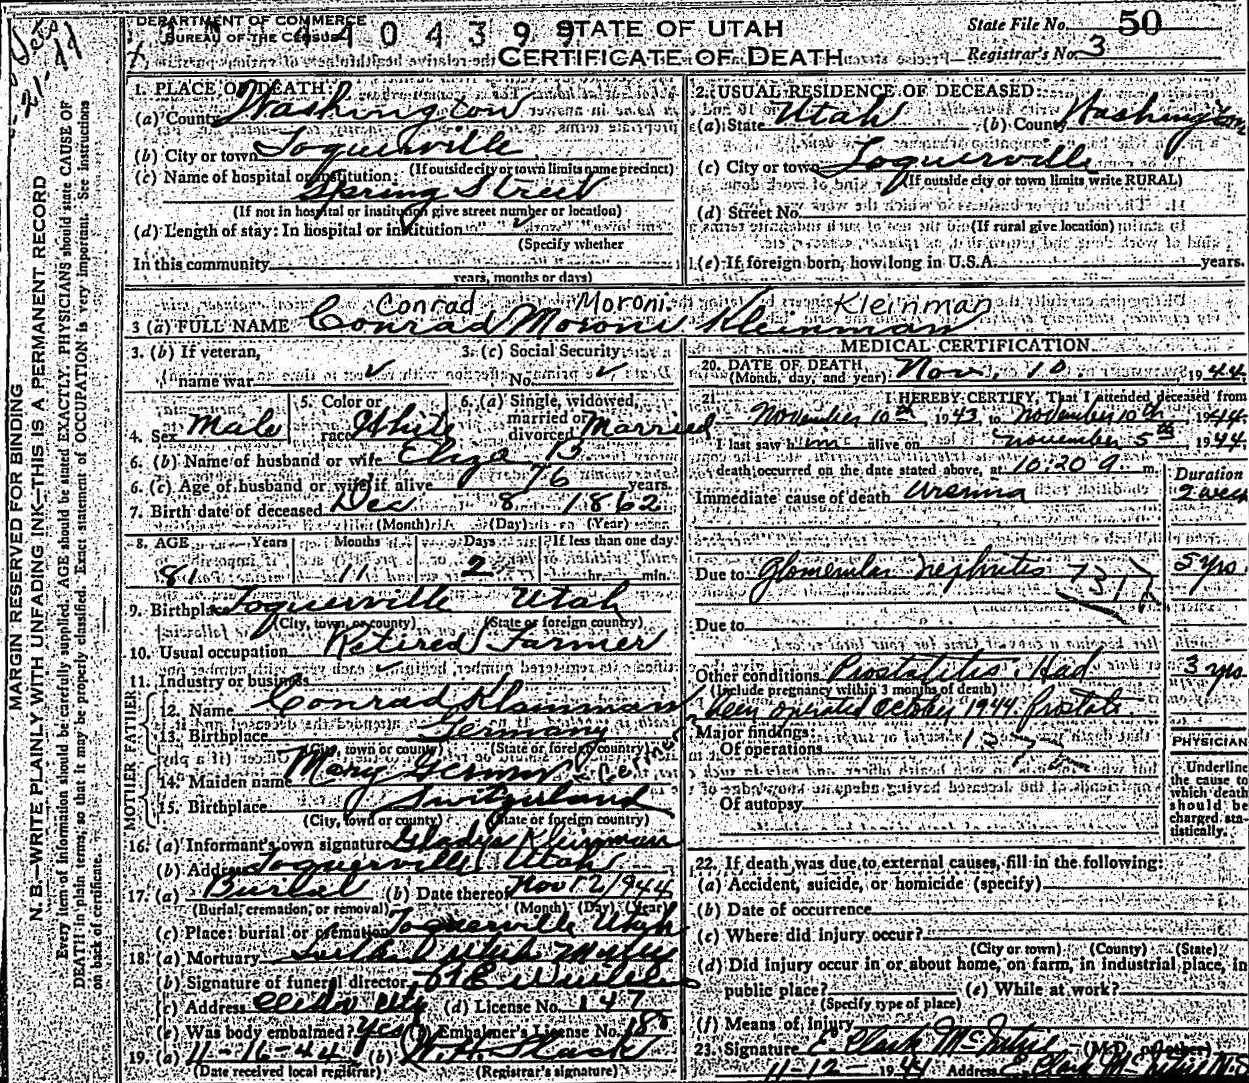 DEPARTMENT OF COMMERCE
BUREAU OF THE CENSUS
4 4 0 4 3 9 9
STATE OF UTAH
CERTIFICATE OF DEATH
State File No. 50
Registrar's No. 3
MARGIN RESERVED FOR BINDING
N. B.—WRITE PLAINLY WITH UNFADING INK—THIS IS A PERMANENT RECORD
Every item of information should be carefully supplied. AGE should be stated EXACTLY. PHYSICIANS should state CAUSE OF
DEATH in plain terms, so that it may be properly classified. Exact statement of OCCUPATION is very important. See instructions
on back of certificate.
1. PLACE OF DEATH:
(a) County Washington
(b) City or town Toquerville
(If outside city or town limits name precinct)
(c) Name of hospital or institution:
Spring Street
(If not in hospital or institution give street number or location)
(d) Length of stay: In hospital or institution
(Specify whether
In this community
years, months or days)
2. USUAL RESIDENCE OF DECEASED:
(a) State Utah (b) County Washington
(c) City or town Toquerville
(If outside city or town limits write RURAL)
(d) Street No.
(If rural give location)
(e) If foreign born, how long in U.S.A. years.
Conrad Moroni Kleinman
3 (a) FULL NAME Conrad Moroni Kleinman
3. (b) If veteran, name war ✓
3. (c) Social Security No. ✓
4. Sex Male
5. Color or race White
6. (a) Single, widowed, married or divorced Married
6. (b) Name of husband or wife Eliza B
6. (c) Age of husband or wife if alive 76 years.
7. Birth date of deceased Dec 8 1862
(Month) (Day) (Year)
8. AGE Years Months Days If less than one day
81 11 2 hr. min.
9. Birthplace Toquerville Utah
(City, town, or county) (State or foreign country)
10. Usual occupation Retired Farmer
11. Industry or business
FATHER
12. Name Conrad Kleinman
13. Birthplace Germany
(City, town or county) (State or foreign country)
MOTHER
14. Maiden name Mary Germer - Germer
15. Birthplace Switzerland
(City, town or county) (State or foreign country)
16. (a) Informant's own signature Gladys Kleinman
(b) Address Toquerville Utah
17. (a) Burial (b) Date thereof Nov 12/944
(Burial, cremation, or removal) (Month) (Day) (Year)
(c) Place: burial or cremation Toquerville Utah
18. (a) Mortuary Southern Utah
(b) Signature of funeral director
(c) Address Cedar City (d) License No. 147
(e) Was body embalmed? Yes (f) Embalmer's License No.
19. (a) 11-16-44 (b)
(Date received local registrar) (Registrar's signature)
MEDICAL CERTIFICATION
20. DATE OF DEATH
(Month, day, and year) Nov. 10 1944.
21. I HEREBY CERTIFY, That I attended deceased from
November 10th 1943, to November 10th 1944.
I last saw him alive on November 5th 1944.
death occurred on the date stated above, at 10:20 a. m.
Duration
Immediate cause of death Uremia 2 week
Due to Glomerular Nephritis 5 yrs
131
Due to
Other conditions Prostatitis. Had 3 yrs
(Include pregnancy within 3 months of death)
been operated October 1944 Prostate
Major findings:
Of operations
Of autopsy
PHYSICIAN
Underline
the cause to
which death
should be
charged sta-
tistically.
22. If death was due to external causes, fill in the following:
(a) Accident, suicide, or homicide (specify)
(b) Date of occurrence
(c) Where did injury occur?
(City or town) (County) (State)
(d) Did injury occur in or about home, on farm, in industrial place, in
public place? (e) While at work?
(Specify type of place)
(f) Means of injury
23. Signature E Clark McIntire (M.D. or other)
11-12- 1944 Address